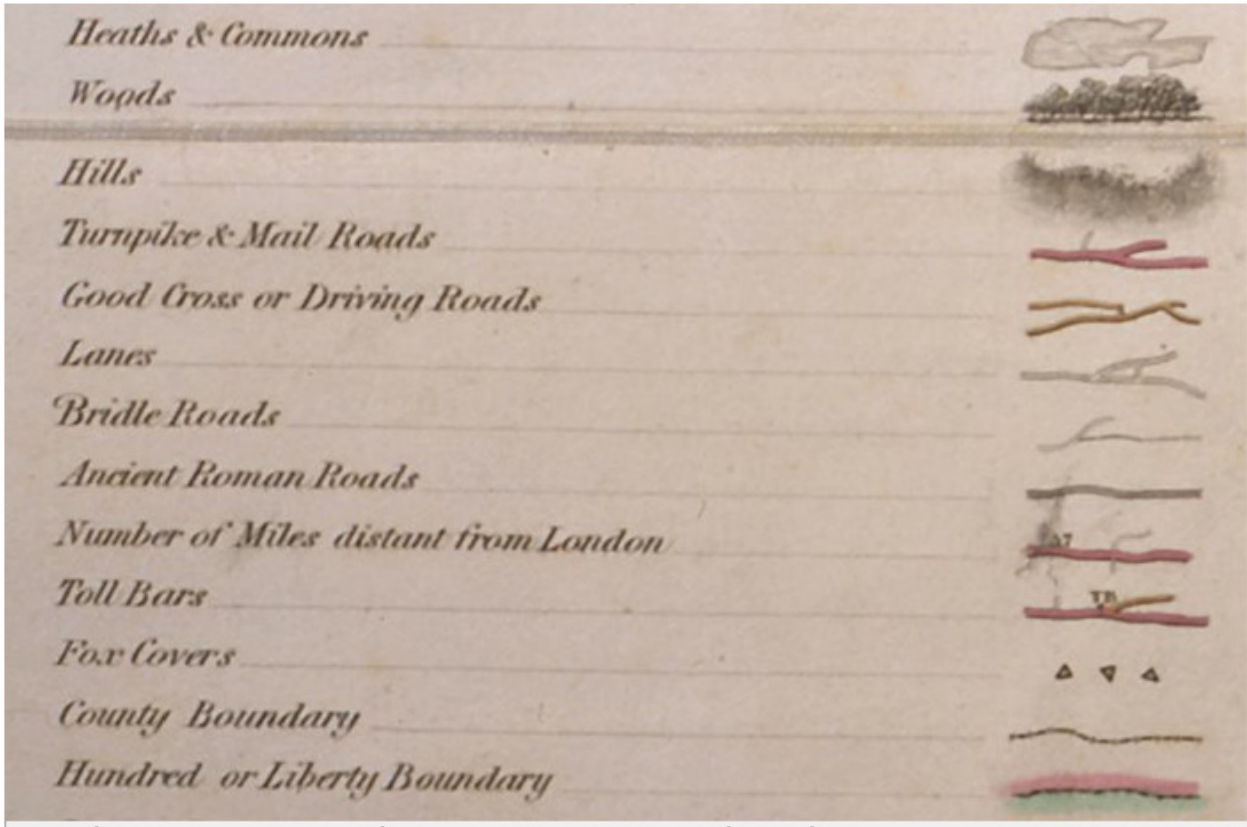 Heaths & Commons
Woods
Hills
Turnpike & Mail Roads
Good Cross or Driving Roads
Lanes
Bridle Roads
Ancient Roman Roads
Number of Miles distant from London
Toll Bars
TB
Fox Covers
County Boundary
Hundred or Liberty Boundary